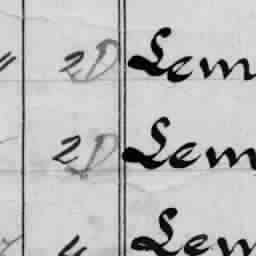 2D Lem
2D Lem
4 Lem